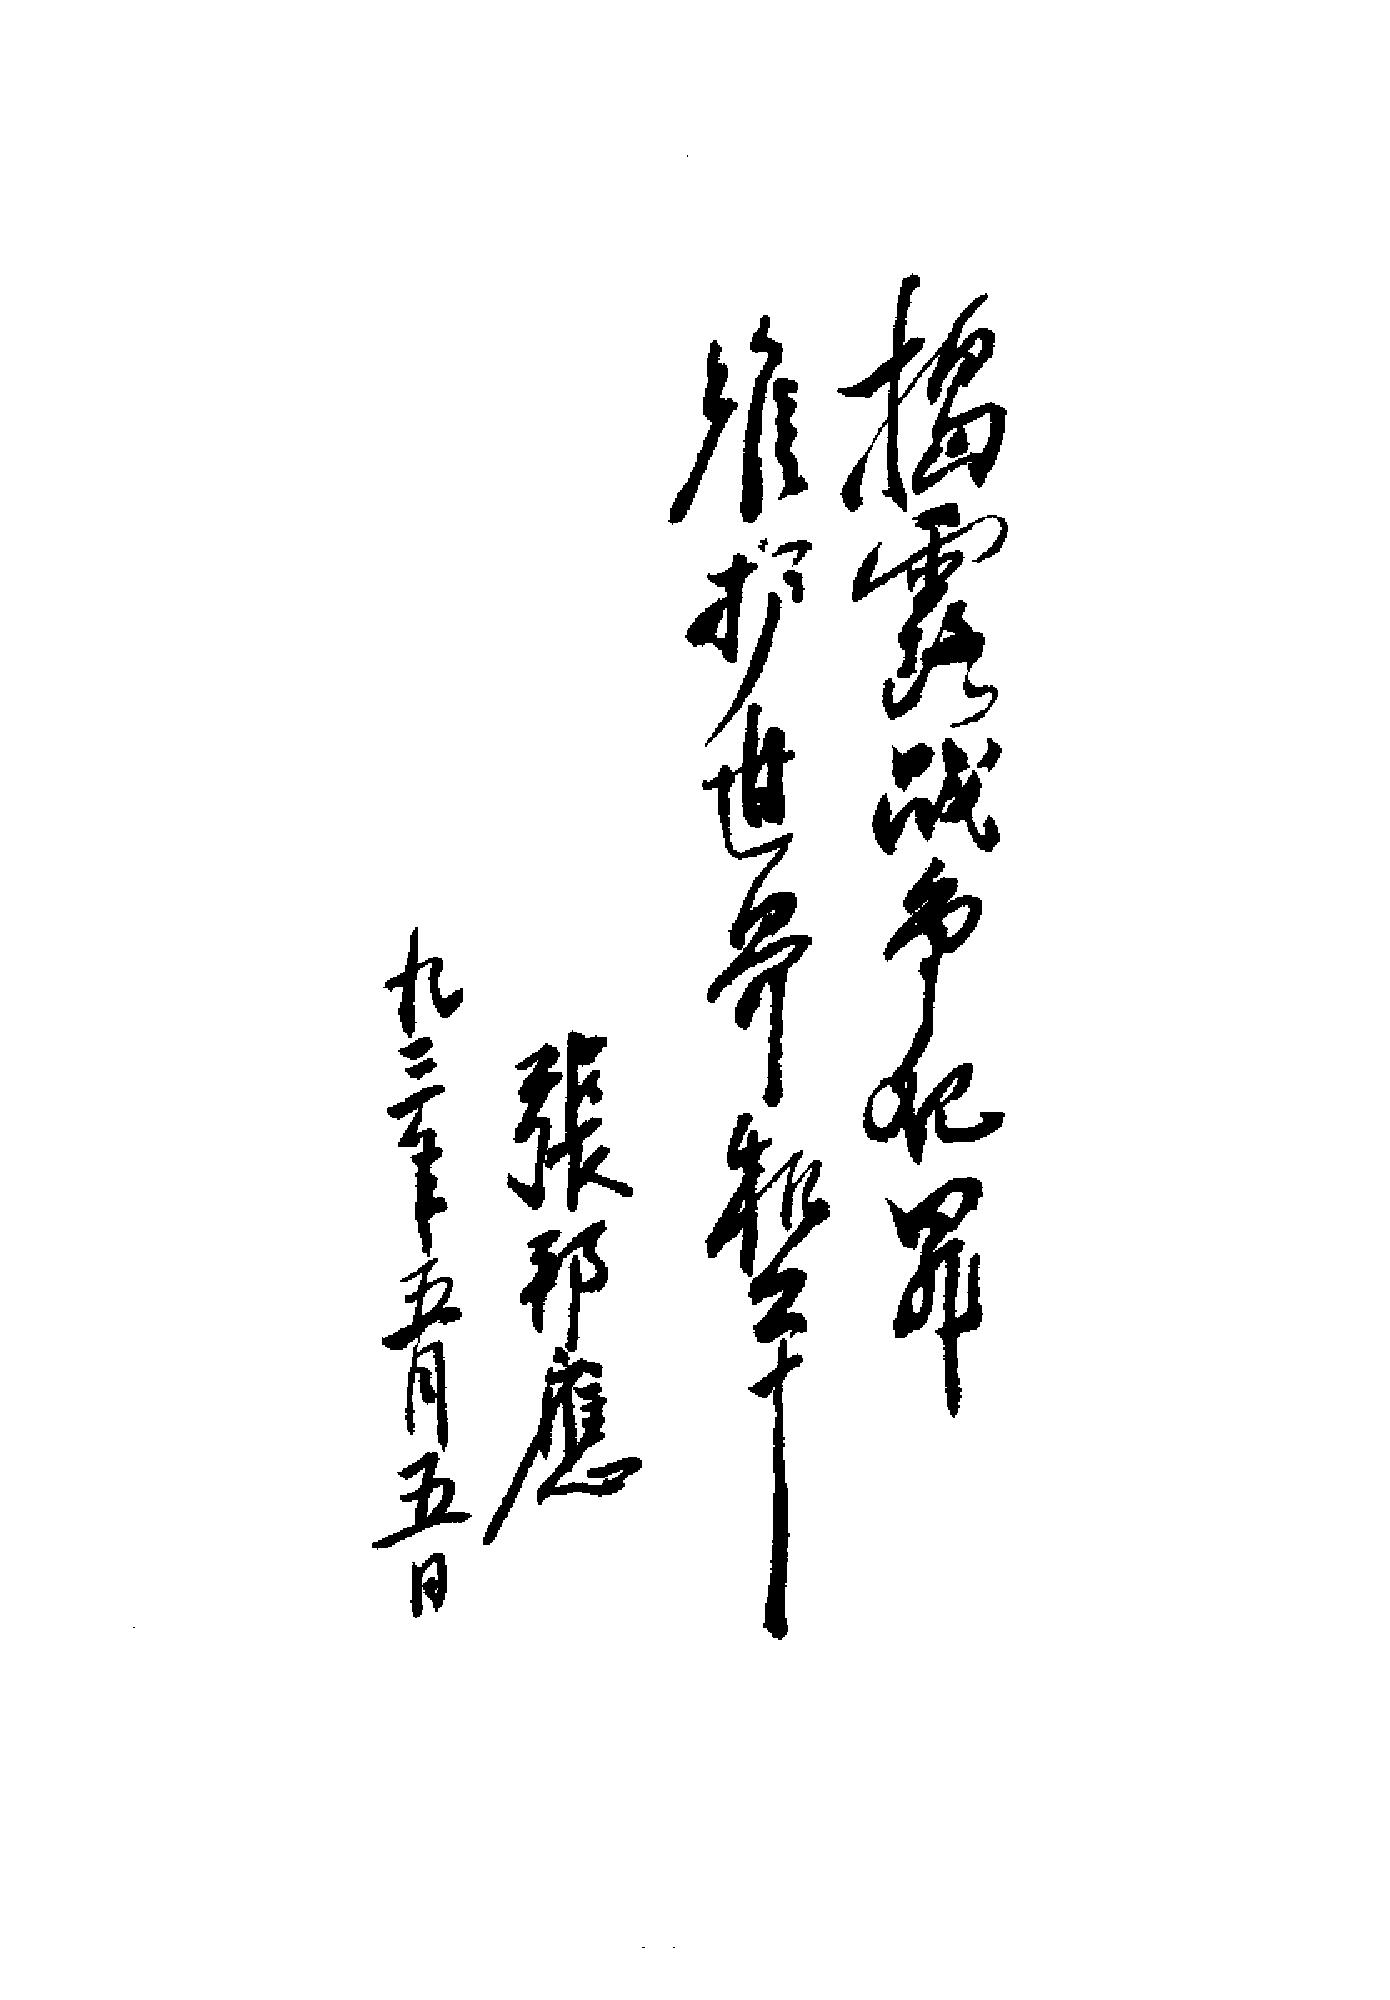 揭露战争犯罪
维护世界和平
張邦應
九三年五月五日